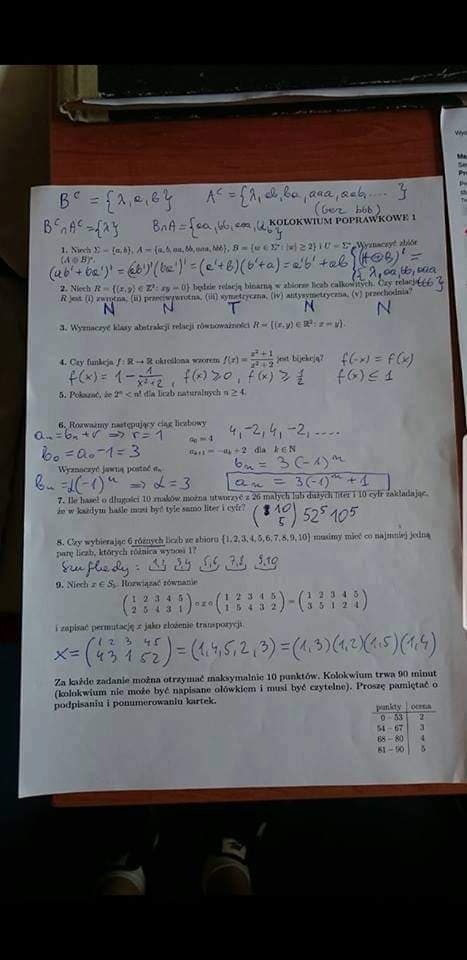 B^c = {λ, a, b}   A^c = {λ, ab, ba, aaa, aab, .... }
(bez bbb)
B^c ∩ A^c = {λ}   B∩A = {aa, bb, aaa, bbb}
KOLOKWIUM POPRAWKOWE 1
1. Niech Σ = {a, b}, A = {a, b, aa, bb, aaa, bbb}, B = {w ∈ Σ* : |w| ≥ 2} i U = Σ*. Wyznaczyć zbiór
(A ⊗ B)^c.
(ab' + ba')' = (ab')'(ba')' = (a'+b)(b'+a) = a'b' + ab   (A⊗B)' =
{λ, aa, bb, aaa, bbb}
2. Niech R = {(x, y) ∈ Z² : xy = 0} będzie relacją binarną w zbiorze liczb całkowitych. Czy relacja
R jest (i) zwrotna, (ii) przeciwzwrotna, (iii) symetryczna, (iv) antysymetryczna, (v) przechodnia?
N N T N N
3. Wyznaczyć klasy abstrakcji relacji równoważności R = {(x, y) ∈ R² : x = y}.
4. Czy funkcja f : R → R określona wzorem f(x) = (x²+1)/(x²+2) jest bijekcją?   f(-x) = f(x)
f(x) = 1 - 1/(x²+2), f(x) ≥ 0, f(x) ≥ 1/2   f(x) ≤ 1
5. Pokazać, że 2ⁿ < n! dla liczb naturalnych n ≥ 4.
6. Rozważmy następujący ciąg liczbowy
a_n = b_n + r ⇒ r = 1   a_0 = 4   4, -2, 4, -2, ....
b_0 = a_0 - 1 = 3   a_{k+1} = -a_k + 2 dla k ∈ N
Wyznaczyć jawną postać a_n.   b_n = 3(-1)^n
b_n = α(-1)^n ⇒ α = 3   a_n = 3(-1)^n + 1
7. Ile haseł o długości 10 znaków można utworzyć z 26 małych lub dużych liter i 10 cyfr zakładając,
że w każdym haśle musi być tyle samo liter i cyfr?   (10 5) 52⁵ 10⁵
8. Czy wybierając 6 różnych liczb ze zbioru {1, 2, 3, 4, 5, 6, 7, 8, 9, 10} musimy mieć co najmniej jedną
parę liczb, których różnica wynosi 1?
Szuflady: 1,2 3,4 5,6 7,8 9,10
9. Niech x ∈ S₅. Rozwiązać równanie
(1 2 3 4 5
2 5 4 3 1) ∘ x ∘ (1 2 3 4 5
1 5 4 3 2) = (1 2 3 4 5
3 5 1 2 4)
i zapisać permutację x jako złożenie transpozycji.
x = (1 2 3 4 5
4 3 1 5 2) = (1,4,5,2,3) = (1,3)(1,2)(1,5)(1,4)
Za każde zadanie można otrzymać maksymalnie 10 punktów. Kolokwium trwa 90 minut
(kolokwium nie może być napisane ołówkiem i musi być czytelne). Proszę pamiętać o
podpisaniu i ponumerowaniu kartek.
punkty ocena
0 – 53 2
54 – 67 3
68 – 80 4
81 – 90 5